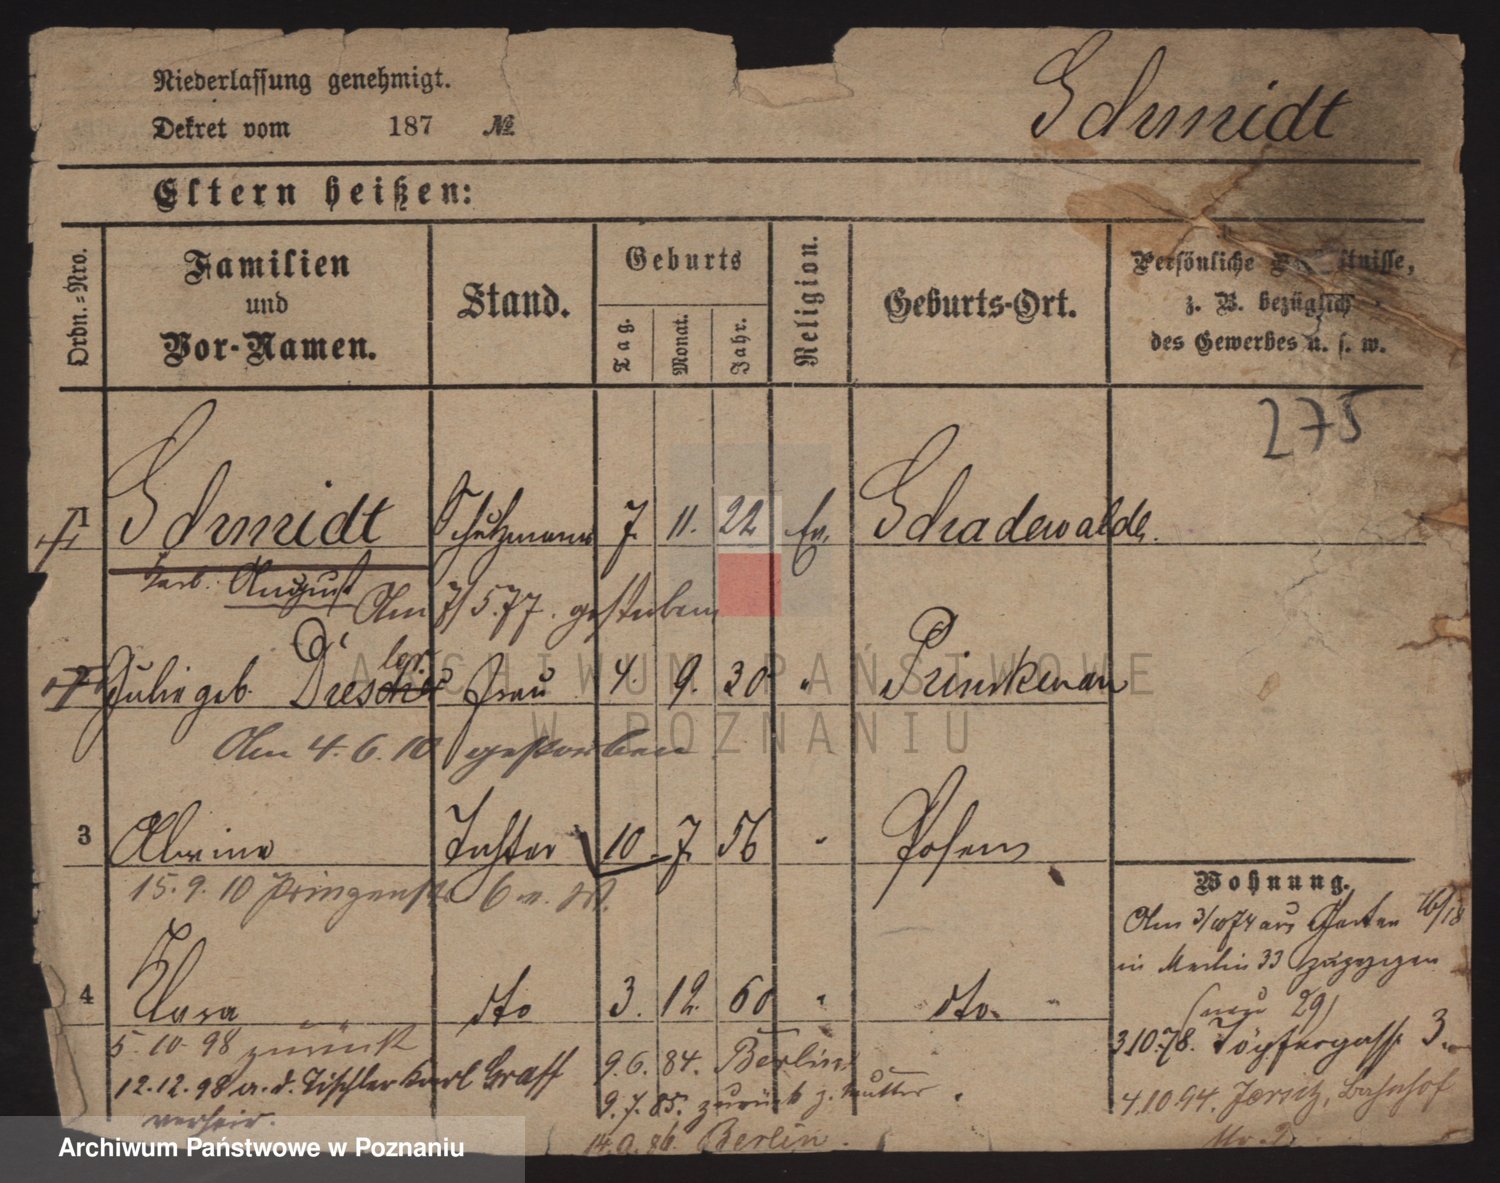 Niederlassung genehmigt.
Dekret vom 187 №
Schmidt
Eltern heißen:
Ordn.=Nro.
Familien
und
Vor-Namen.
Stand.
Geburts
Tag.
Monat.
Jahr.
Religion.
Geburts-Ort.
Persönliche
z. B. bezüglich
des Gewerbes u. s. w.
275
1 Schmidt Schutzmann 7. 11. 22 Ev. Schadewalde.
August
Am 7/5.77. gestorben
2 Julie geb. Dresler Frau 4. 9. 30 " Prinkenau
Am 4.6.10 gestorben
3 Alwine Tochter 10. 7. 56 " Posen
15.9.10 Prinzenstr. 6
4 Clara dto 3. 12. 60 " dto. "
5.10.98 zurück
12.12.98 a. d. Tischler Karl Graff
verheir.
9.6.84. Berlin
9.7.85. zurück z. Mutter.
14.9.86. Berlin.
Wohnung.
Am 3/10 74 aus Garten 16/18
in Berlin 33 zugezogen
(neu 29)
3.10.78. Töpfergasse 3.
4.10.94. Jersitz, Bahnhof
Nr. 2
ARCHIWUM PAŃSTWOWE
W POZNANIU
Archiwum Państwowe w Poznaniu